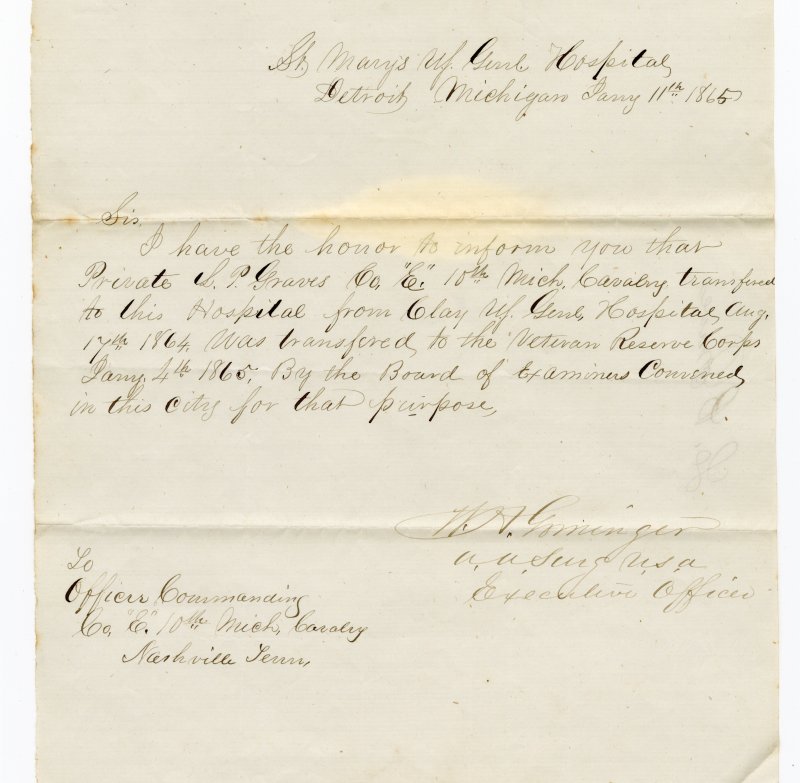 St Marys Uf. Genl Hospital,
Detroit Michigan Jany 11th 1865
Sir,
I have the honor to inform you that
Private S. P. Graves Co, "E." 10th Mich, Cavalry. transfered
to this Hospital from Clay Uf. Genl, Hospital, Aug.
17th 1864. Was transfered, to the Veteran Reserve Corps
Jany. 4th 1865, By the Board of Examiners Convened,
in this City for that purpose,
W. A.
A. A Surg U.S.A
Executive Officer
To
Officer Commanding
Co, "E." 10th Mich, Cavalry
Nashville Tenn,